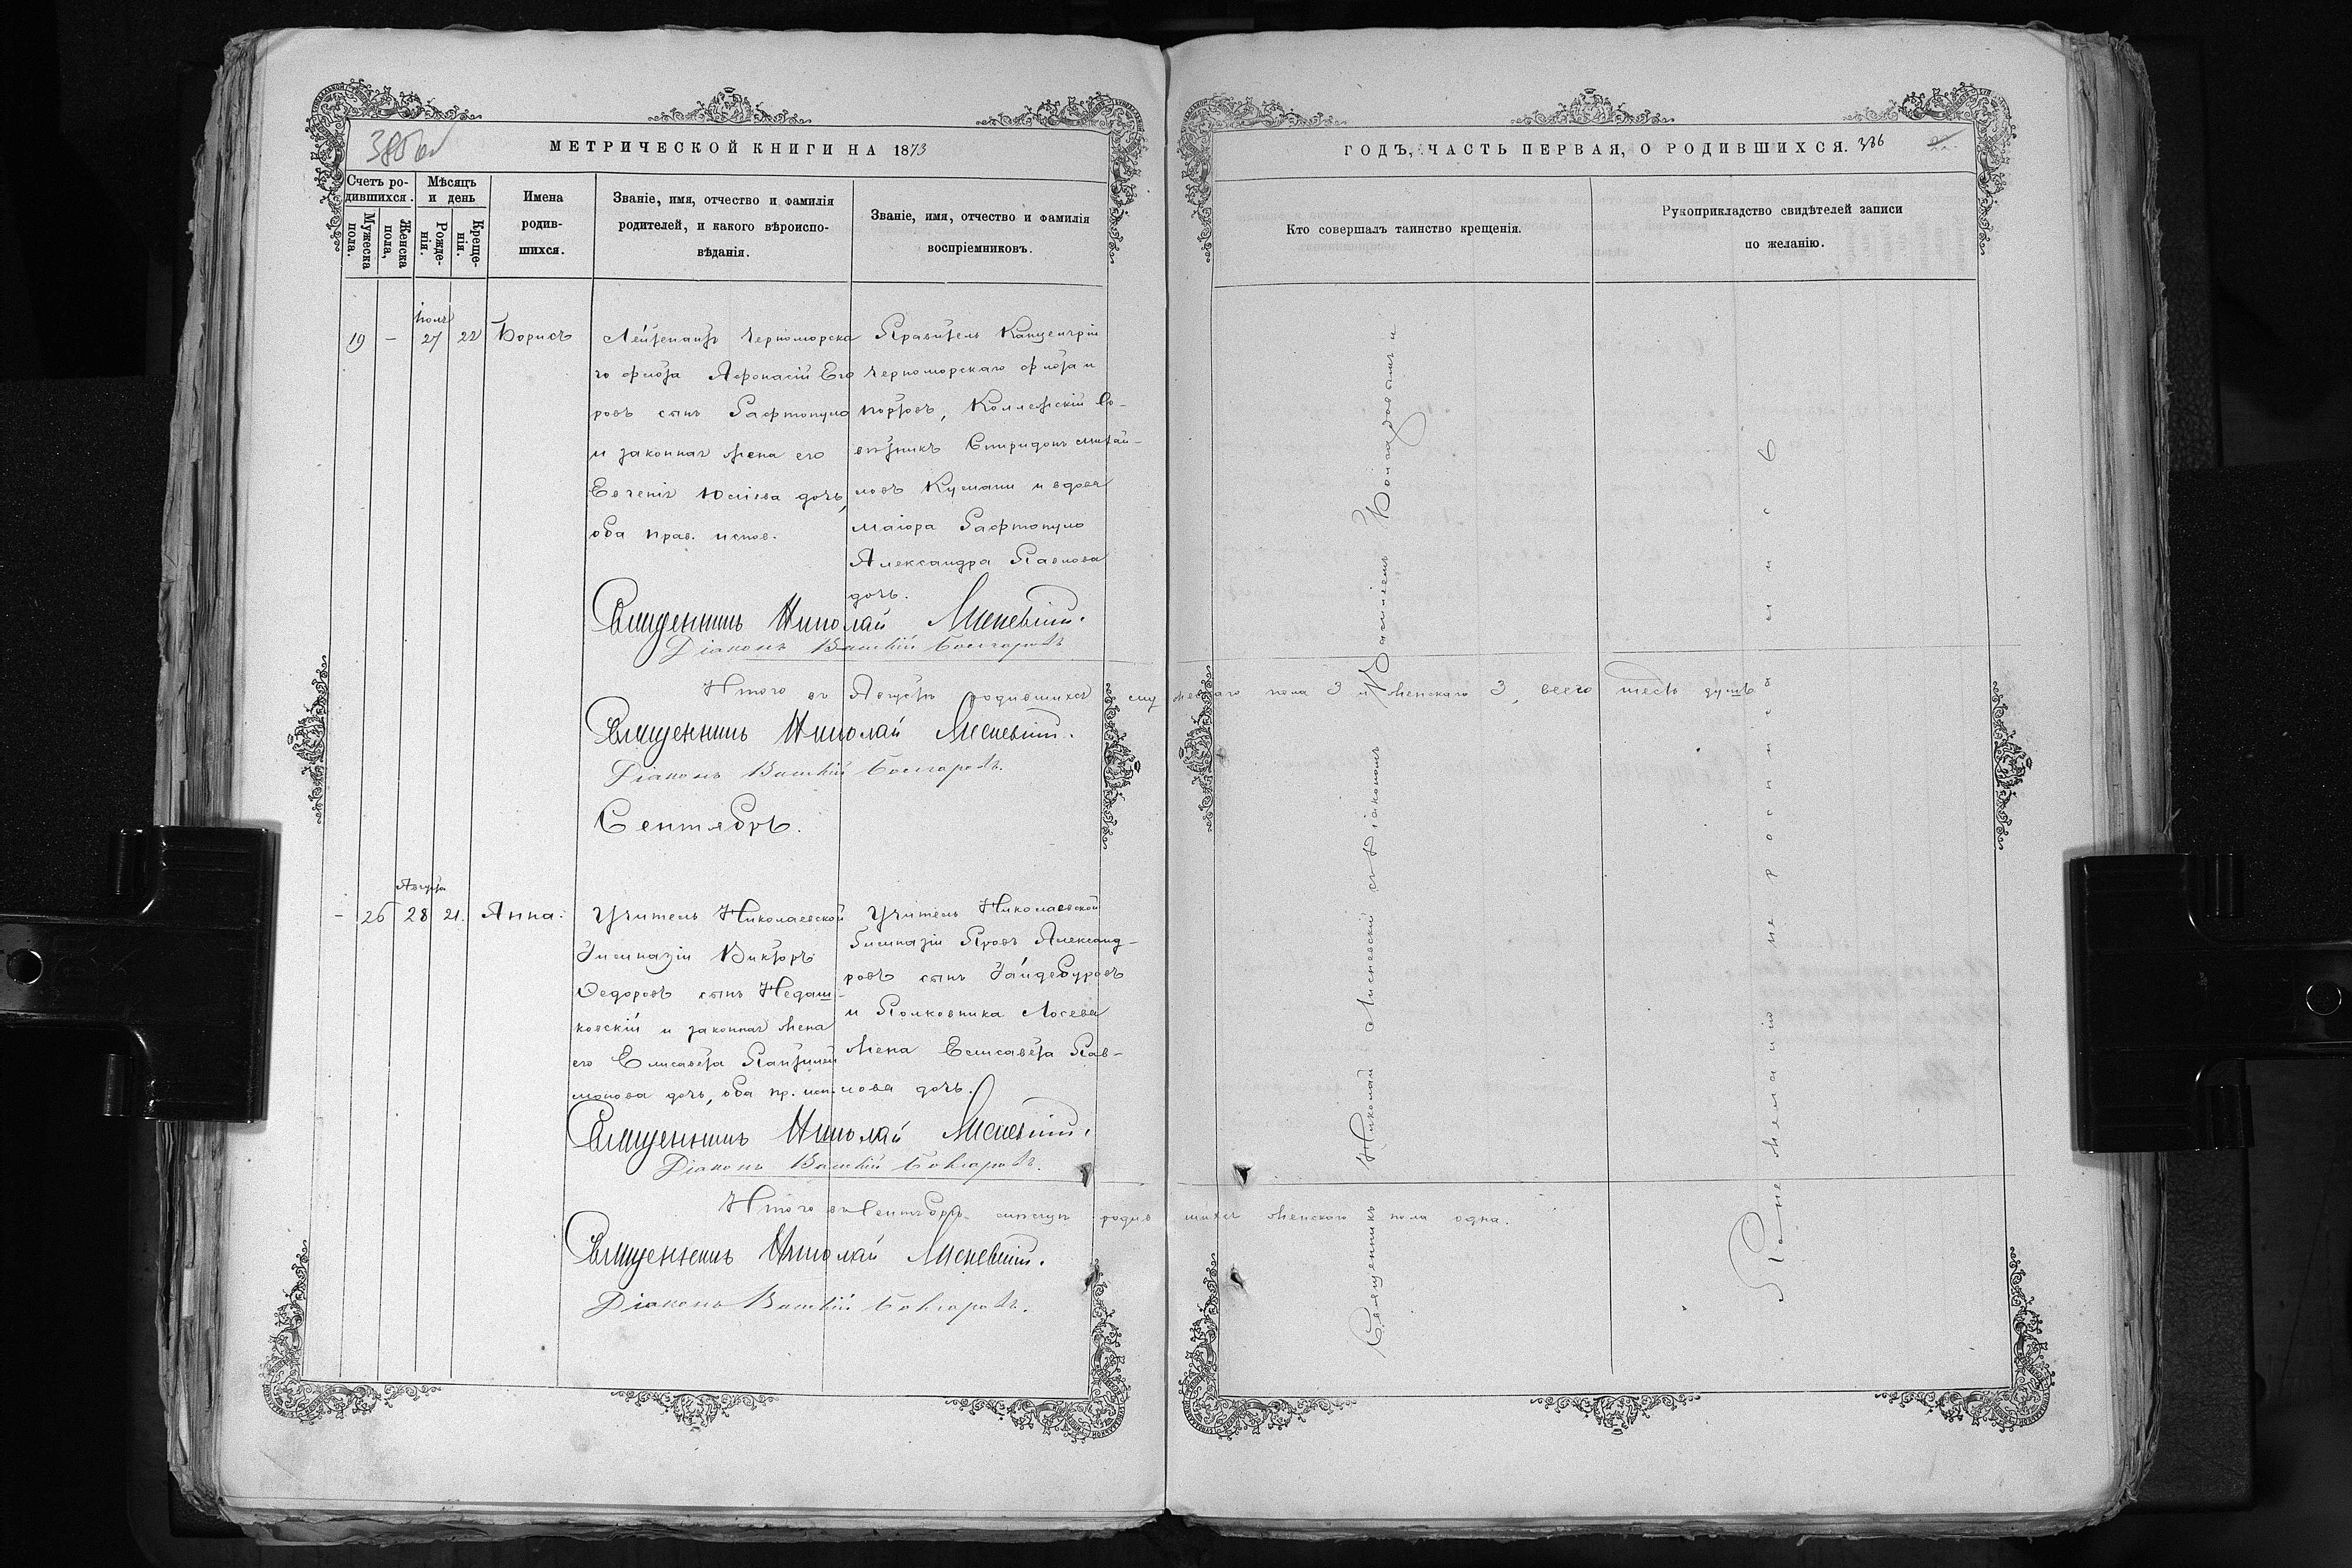 385 об
МЕТРИЧЕСКОЙ КНИГИ НА 1873
Счетъ ро-
дившихся.
Мѣсяцъ
и день
Имена
родив-
шихся.
Званіе, имя, отчество и фамилія
родителей, и какого вѣроиспо-
вѣданія.
Званіе, имя, отчество и фамилія
воспріемниковъ.
Мужеска
пола.
Женска
пола,
Рожде-
нія.
Креще-
нія.
19 – 27 22 Борисъ
Лейтенантъ Черноморска
го флота Афонасій Его
ровъ сынъ Рафтопуло
и законная жена его
Евгенія Юліева дочь,
оба прав. испов.
Правитель Канцеляріи
Черноморскаго флота и
портовъ, Коллежскій Со-
вѣтникъ Спиридонъ Михай-
ловъ Кумани и вдова
маіора Рафтопуло
Александра Павлова
дочь.
Священникъ Николай Лисневскій.
Діаконъ Василій
Итого въ Августѣ родившихся мужескаго пола 3 и женскаго 3, всего шесть душъ
Священникъ Николай Лисневскій.
Діаконъ Василій
Сентябрь.
Августа
– 26 28 21. Анна.
Учитель Николаевской
Гимназіи Викторъ
Ѳедоровъ сынъ Недаш-
ковскій и законная жена
его Елисавета Пантилей
монова дочь, оба пр. исп.
Учитель Николаевской
Гимназіи Провъ Александ-
ровъ сынъ Гайдебуровъ
и Полковника Лосева
жена Елисавета Пав-
лова дочь.
Священникъ Николай Лисневскій.
Діаконъ Василій
Итого въ Сентябрѣ мѣсяцѣ родившихся женскаго пола одна.
Священникъ Николай Лисневскій.
Діаконъ Василій
ГОДЪ, ЧАСТЬ ПЕРВАЯ, О РОДИВШИХСЯ. 386
Кто совершалъ таинство крещенія.
Рукоприкладство свидѣтелей записи
по желанію.
Священникъ Николай Лисневскій съ Діакономъ Василіемъ
По не желанію не росписались